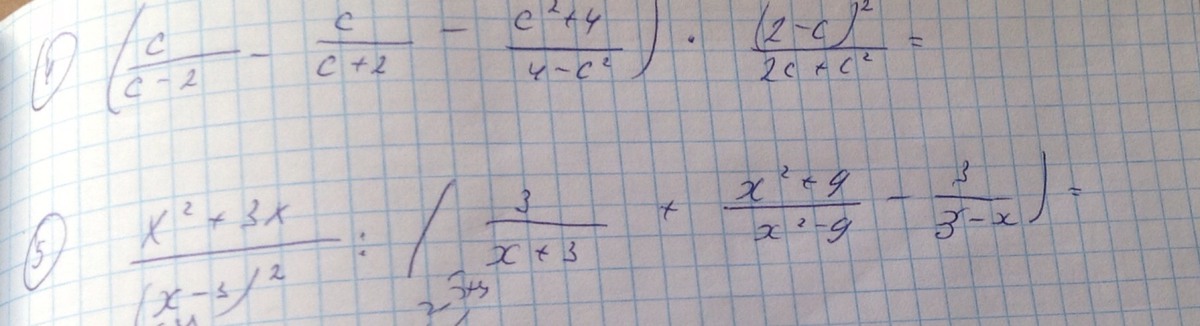 ④ (c/(c-2) - c/(c+2) - (c²+4)/(4-c²)) · (2-c)²/(2c+c²) =
⑤ (x²+3x)/(x-3)² : (3/(x+3) + (x²+9)/(x²-9) - 3/(3-x)) =